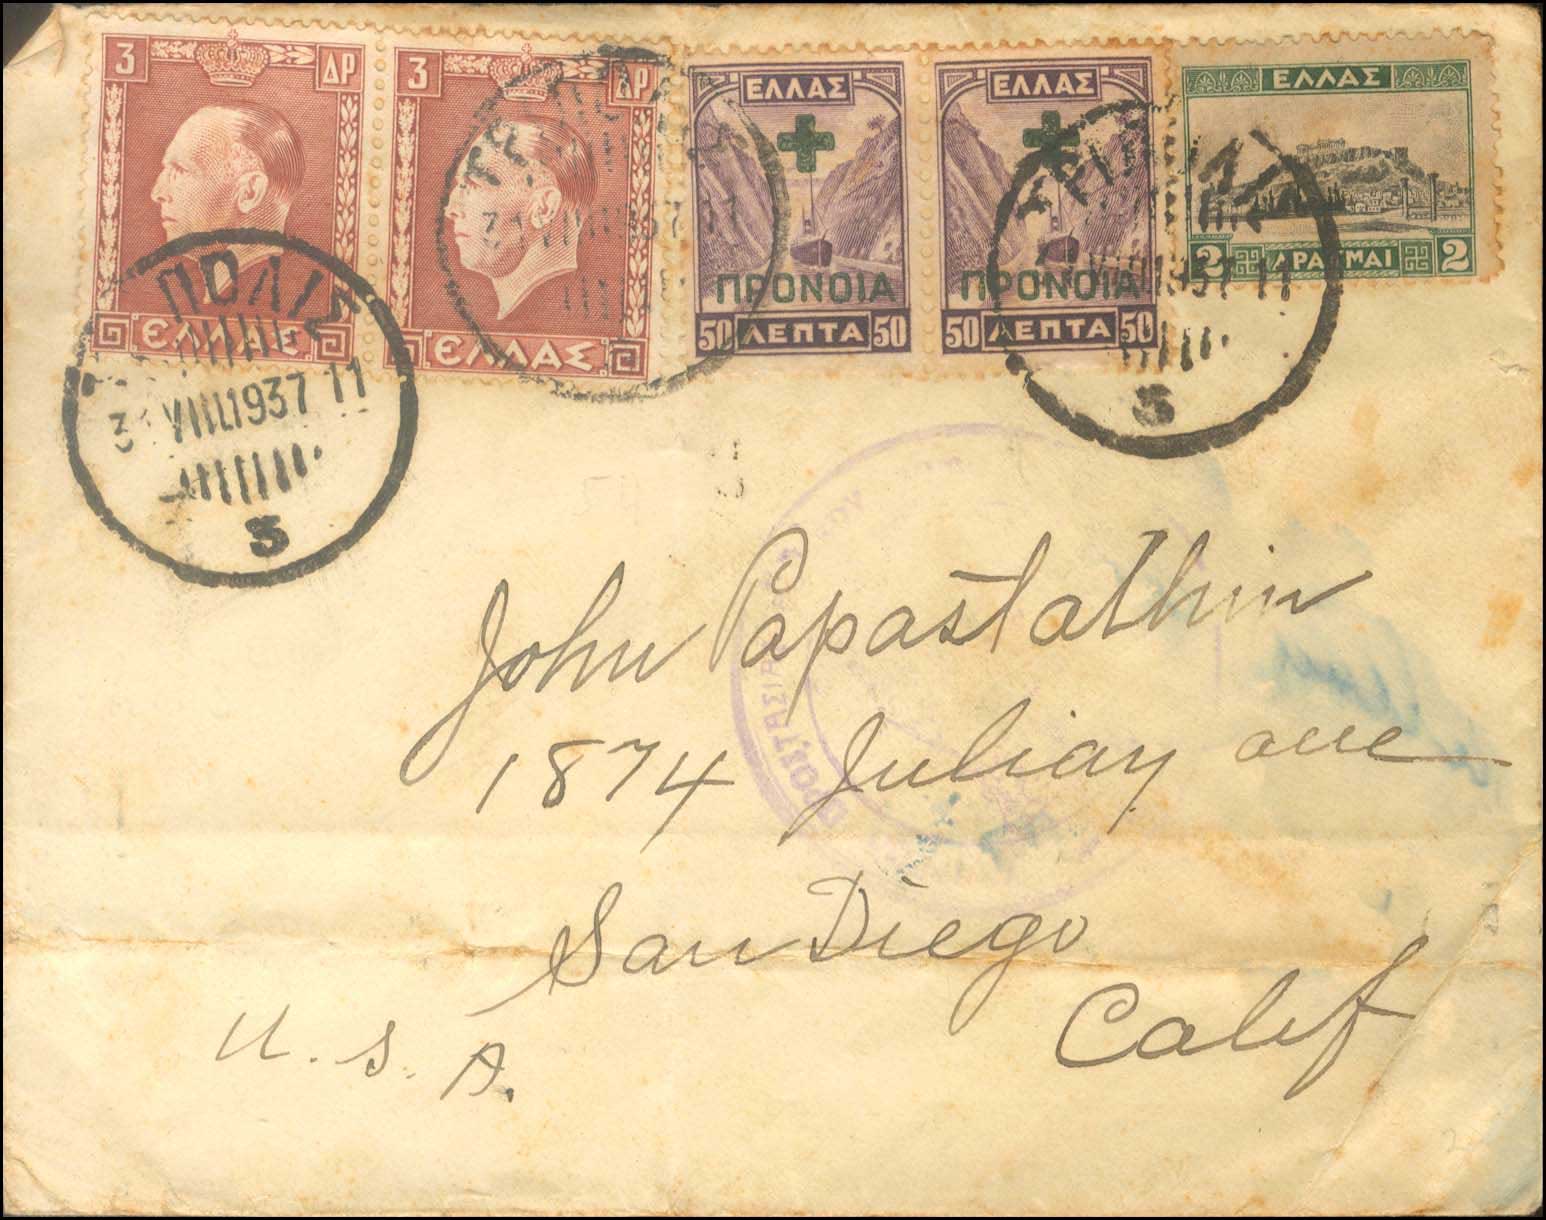 3 ΔΡ
ΕΛΛΑΣ
3 ΔΡ
ΕΛΛΑΣ
ΕΛΛΑΣ
ΠΡΟΝΟΙΑ
50 ΛΕΠΤΑ 50
ΕΛΛΑΣ
ΠΡΟΝΟΙΑ
50 ΛΕΠΤΑ 50
ΕΛΛΑΣ
2 ΔΡΑΧΜΑΙ 2
VIII.1937 11
3
1937 11
3
ΠΡΟΣΤΑΣΙΑ
John Papastathin
1874 Juliay ave
San Diego
Calif
U.S.A.